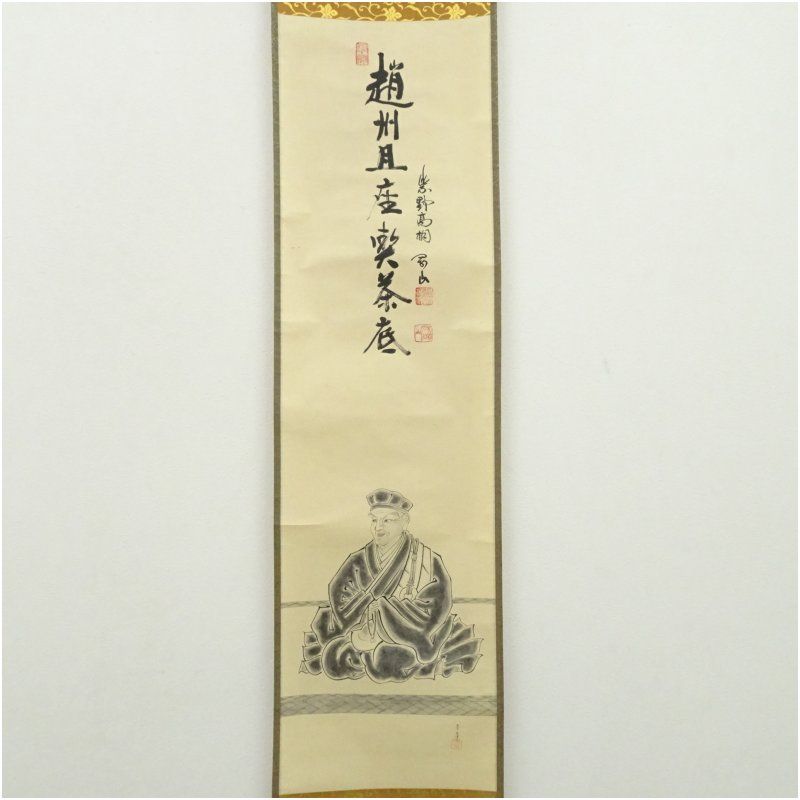 趙州且座喫茶底
紫野高桐 寛山